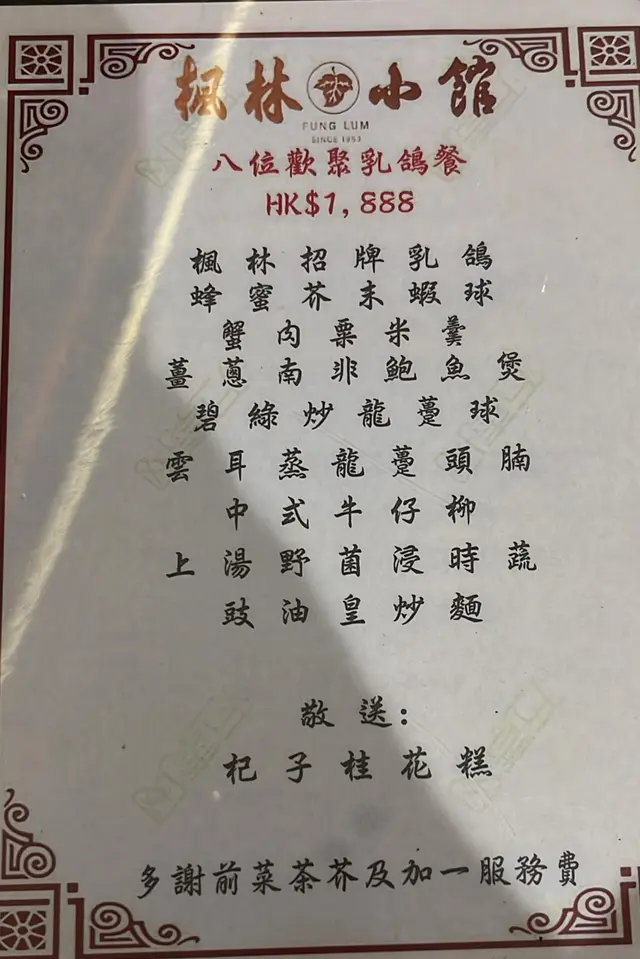 楓林小館
FUNG LUM
SINCE 1953
八位歡聚乳鴿餐
HK$1,888
楓林招牌乳鴿
蜂蜜芥末蝦球
蟹肉粟米羹
薑蔥南非鮑魚煲
碧綠炒龍躉球
雲耳蒸龍躉頭腩
中式牛仔柳
上湯野菌浸時蔬
豉油皇炒麵
敬送:
杞子桂花糕
多謝前菜茶芥及加一服務費